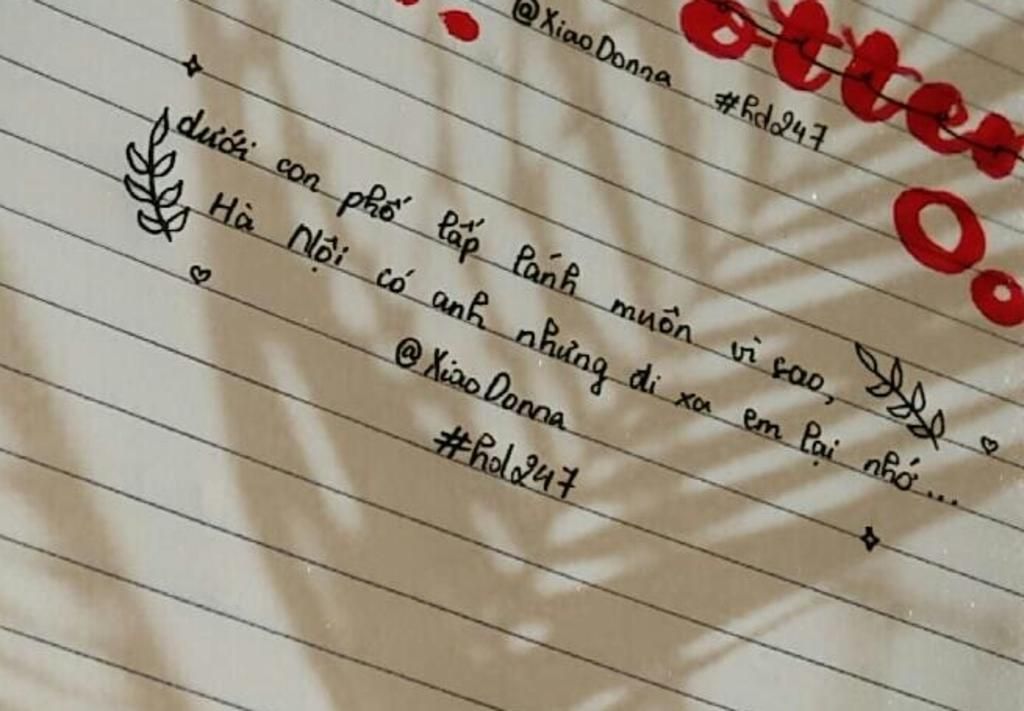 @XiaoDonna
otter
#hd247
dưới con phố lấp lánh muôn vì sao,
Hà Nội có anh nhưng đi xa em lại nhớ...
@XiaoDonna
#hd247